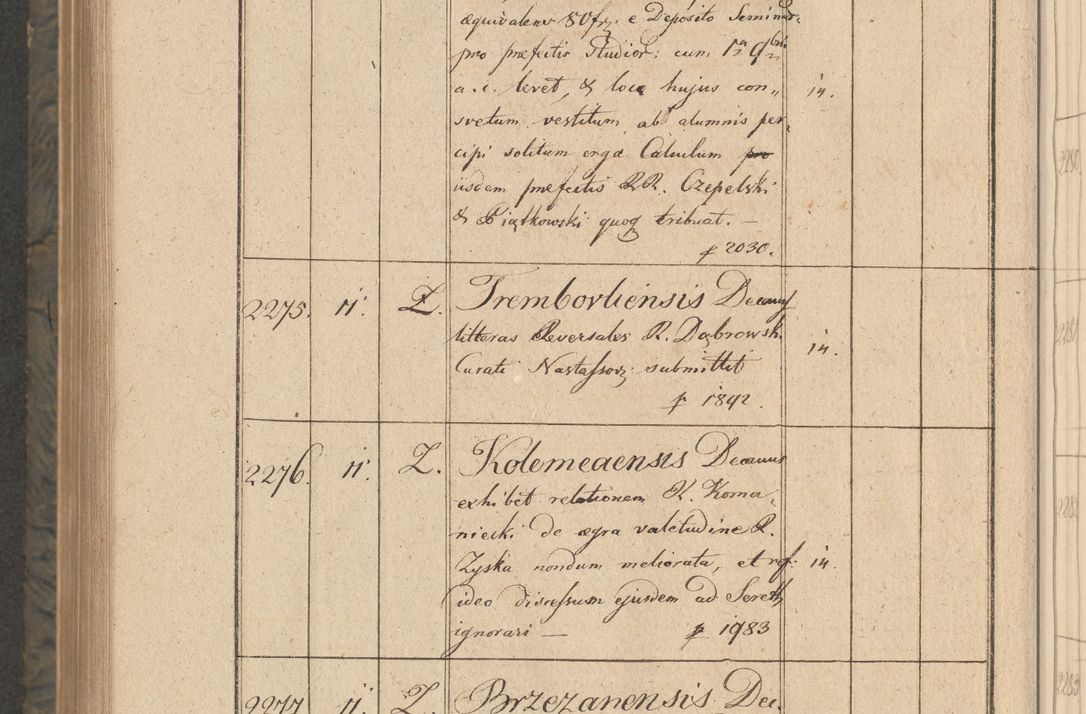 æquivalens 80 fr. e Deposito Seminar.
pro præfectis Studior: cum 1ma 9bris
a. c. levet, & loco hujus con„
svetum vestitum ab alumnis per„
cipi solitum erga Calculum pro
iisdem præfectis RR. Czepelski
& Piątkowski quoq tribuat. —
14.
p 2030.
2275. 11. Z. Trembovliensis Decanus
litteras Reversales R. Dąbrowski
Curati Nastassov submittit
14.
p 1892.
2276. 11. Z. Kolomeaensis Decanus
exhibet relationem R. Koma„
niecki de ægra valetudine R.
Zyska nondum meliorata, et ref: 14.
ideo discessum ejusdem ad Sereth
ignorari — p 1983
2277 11. Z. Brzezanensis Dec.
2280
2281
2282
2283